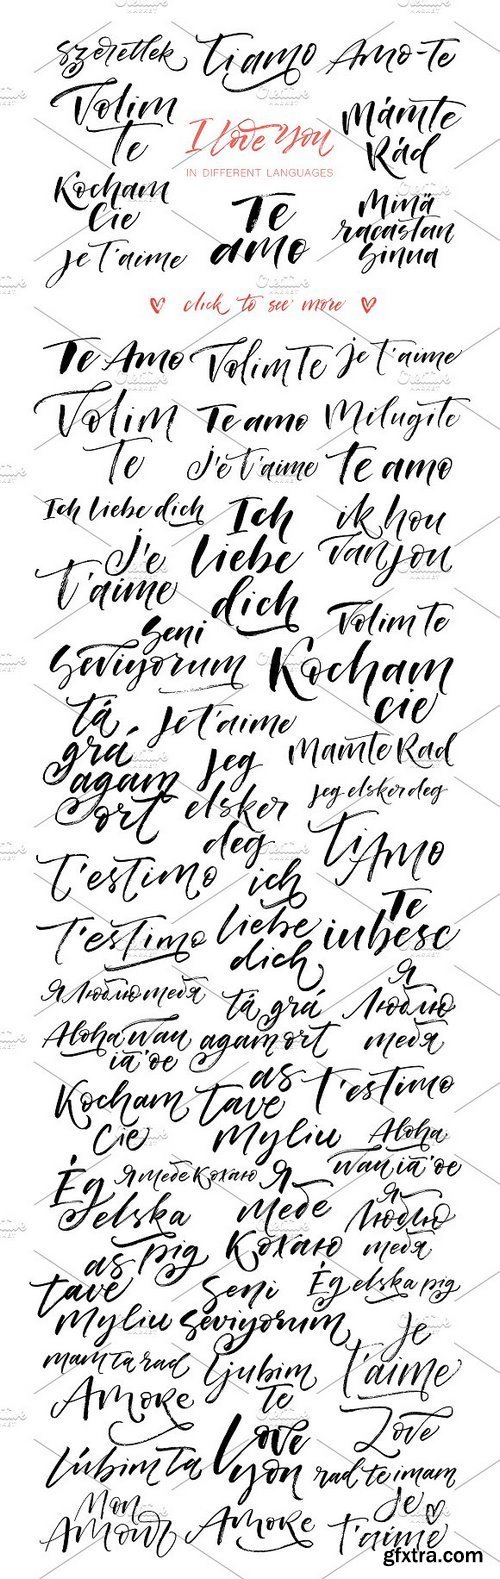 Szeretlek Ti amo Amo-te
Volim
te
I love you
IN DIFFERENT LANGUAGES
Mámte
Rád
Kocham
Cie
Te
amo
Minä
racastan
Sinua
Je t'aime
click to see more
Te Amo Volim Te Je t'aime
Volim
Te
Te amo
Milujite
J'e t'aime
te amo
Ich liebe dich
Ich
liebe
dich
ik hou
van jou
J'e
t'aime
Volim te
Seni
Seviyorum
Kocham
cie
tá
grá
agam
ort
Je t'aime
Mamte Rad
Jeg
elsker
deg
Jeg elsker deg
Ti Amo
T'estimo
ich
liebe
dich
Te
iubesc
T'estimo
Я люблю тебя
tá grá
agam ort
Я
Люблю
тебя
Aloha wau
ia 'oe
as
tave
myliu
T'estimo
Kocham
Cie
Aloha
wau ia 'oe
Ég
elska
pig
Я тебе Кохаю
Я
тебе
Кохаю
Я
Люблю
тебя
as
tave
myliu
Seni
seviyorum
Ég elska pig
Je
t'aime
mam ta rad
Ljubim
te
Amore
Love
you
Love
Lúbim ta
rad te imam
Mon
Amour
Amore
Je
t'aime
gfxtra.com